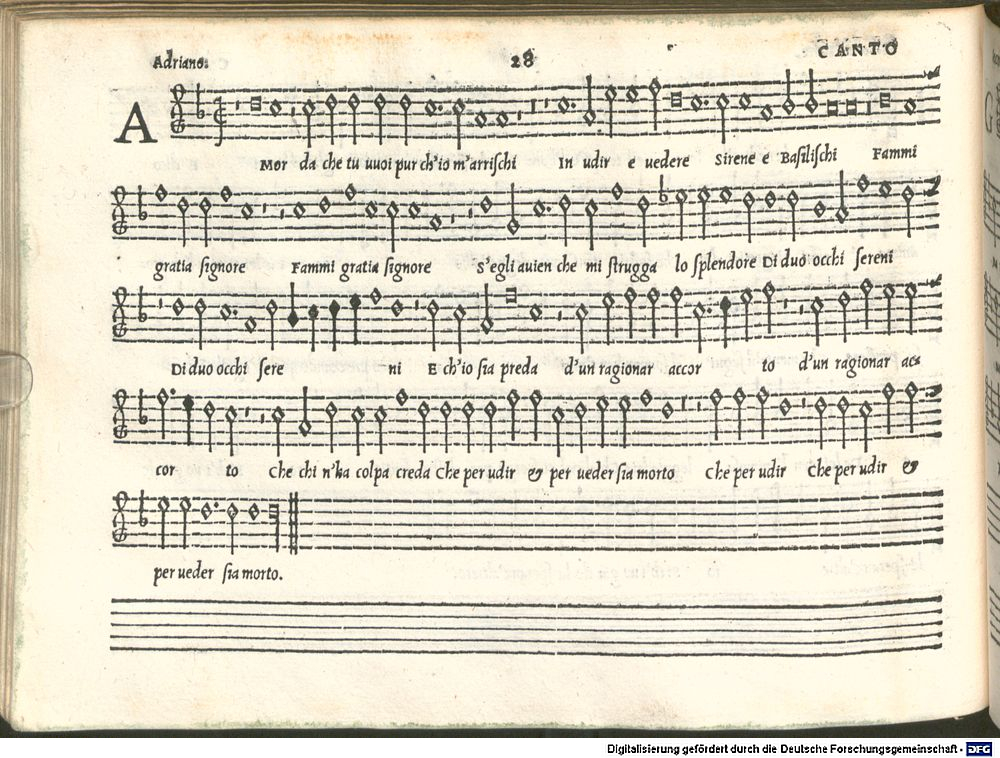 Adriano. 28 CANTO
AMor da che tu uuoi pur ch'io m'arrischi In udir e uedere Sirene e Basilischi Fammi
gratia signore Fammi gratia signore S'egli auien che mi strugga lo splendore Di duo occhi sereni
Di duo occhi sere - ni E ch'io sia preda d'un ragionar accor to d'un ragionar ac-
cor to Che chi n'ha colpa creda Che per udir & per ueder sia morto Che per udir Che per udir &
per ueder sia morto.
Digitalisierung gefördert durch die Deutsche Forschungsgemeinschaft - DFG